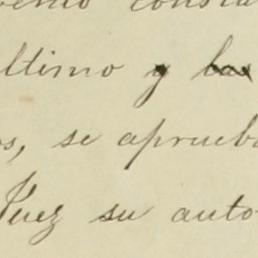 consta
último y las
os, se aprueba
Juez su auto